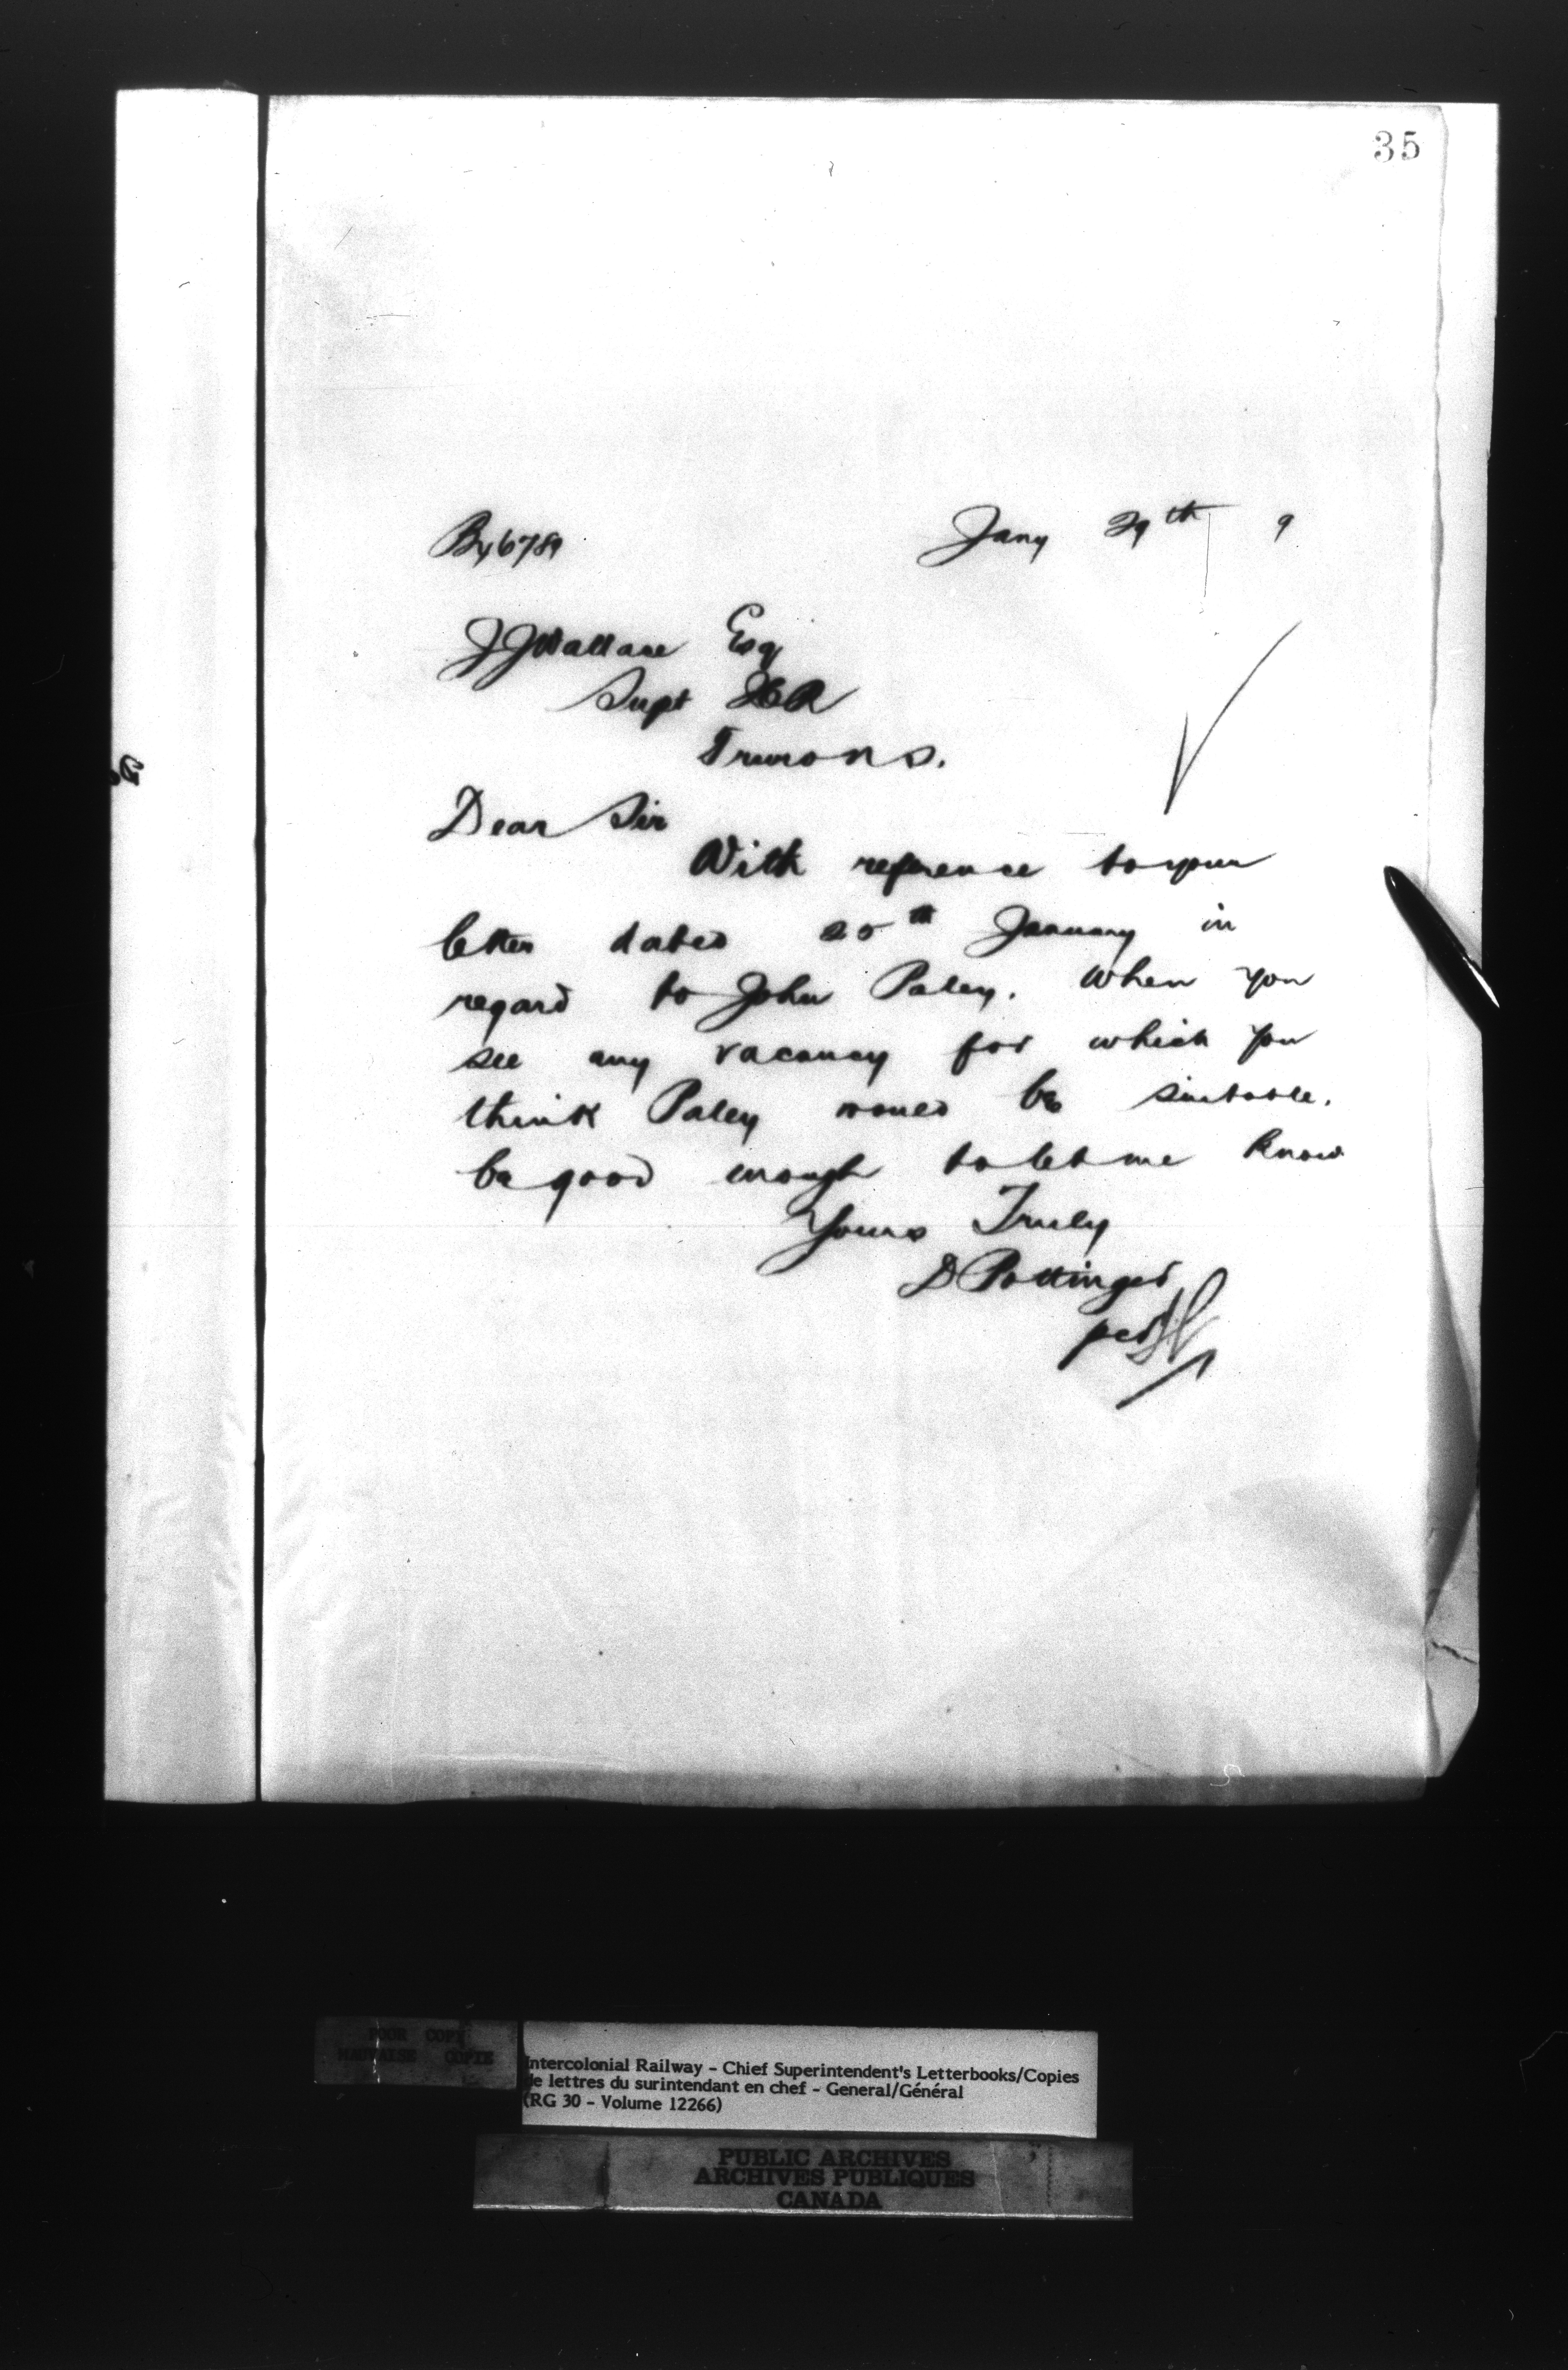 35
By 6789 Jany 29th 9
J J Wallace Esq
Supt ICR
Truro N S.
Dear Sir
With reference to your
letter dated 25th January in
regard to John Paley. When you
see any vacancy for which you
think Paley would be suitable.
be good enough to let me know
Yours Truly
D Pottinger
per
POOR COPY
MAUVAISE COPIE
Intercolonial Railway - Chief Superintendent's Letterbooks/Copies
de lettres du surintendant en chef - General/Général
(RG 30 - Volume 12266)
PUBLIC ARCHIVES
ARCHIVES PUBLIQUES
CANADA